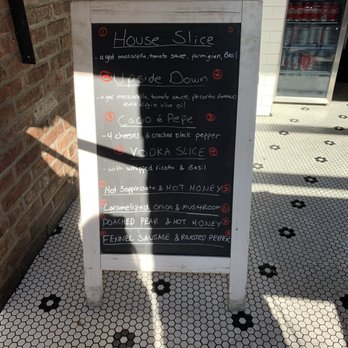 ① House Slice
- aged mozzarella, tomato sauce, parmigiano, Basil
② Upside Down ②
- aged mozzarella, tomato sauce, pecorino Romano
extra virgin olive oil
③ Cacio é Pepe ③
- 4 cheeses & cracked black pepper
④ VODKA SLICE ④
- with whipped ricotta & Basil
Hot Soppressata & HOT HONEY ⑤
Caramelized onion & MUSHROOM ⑥
POACHED PEAR & HOT HONEY ⑦
FENNEL SAUSAGE & ROASTED PEPPER